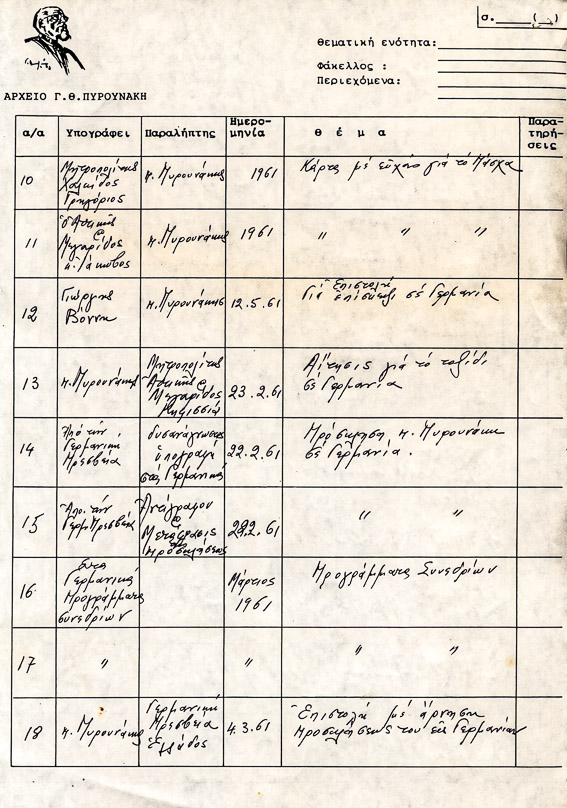 σ. ____(__)
θεματική ενότητα:
Φάκελλος :
Περιεχόμενα:
ΑΡΧΕΙΟ Γ.Θ.ΠΥΡΟΥΝΑΚΗ
α/α Υπογράφει Παραλήπτης Ημερο-μηνία θ έ μ α Παρα-τηρή-σεις
10 Μητροπολίτης Χαλκίδος Γρηγόριος π. Πυρουνάκης 1961 Κάρτα με εὐχές γιά τό Πάσχα
11 ὁ Ἀττικῆς Μεγαρίδος κ. Ἰάκωβος π. Πυρουνάκης 1961 〃 〃 〃
12 Γιώργης π. Πυρουνάκης 12.5.61 Ἐπιστολή Γιά ἐπίσκεψι σέ Γερμανία
13 π. Πυρουνάκης Μητροπολίτης Ἀττικῆς & Μεγαρίδος Κηφισσιά 23.2.61 Αἴτησις γιά τό ταξίδι σέ Γερμανία
14 Ἀπό τήν Γερμανική Πρεσβεία δυσανάγνωστος ὑπογραφή στά Γερμανικά 22.2.61 Πρόσκληση π. Πυρουνάκη σέ Γερμανία.
15 Ἀπό τήν Γερμ. Πρεσβεία Ἀντίγραφον & Μετάφρασις προσκλήσεως 22.2.61 〃 〃
16 Γερμανικά Προγράμματα συνεδρίων Μάρτιος 1961 Προγράμματα Συνεδρίων
17 〃 〃 〃 〃
18 π. Πυρουνάκης Γερμανική Πρεσβεία Ἑλλάδος 4.3.61 Ἐπιστολή μέ ἄρνηση προσκλήσεως του εἰς Γερμανίαν